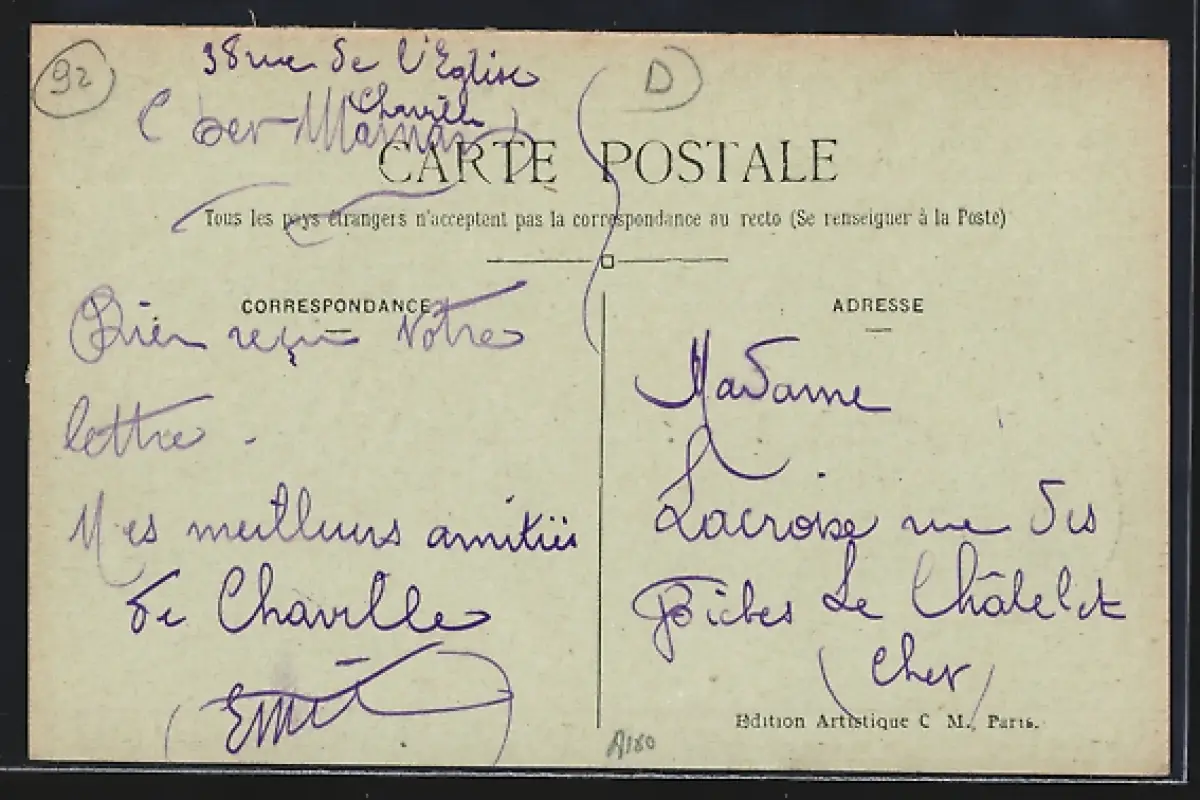 92
38 rue de l'Eglise
D
Chaville
C ber Maman
CARTE POSTALE
Tous les pays étrangers n'acceptent pas la correspondance au recto (Se renseigner à la Poste)
CORRESPONDANCE
Bien reçu Votre
lettre.
Mes meilleurs amitiés
de Chaville
ADRESSE
Madame
Lacroix rue des
Le Châtelet
(Cher)
Edition Artistique C M., Paris.
A180